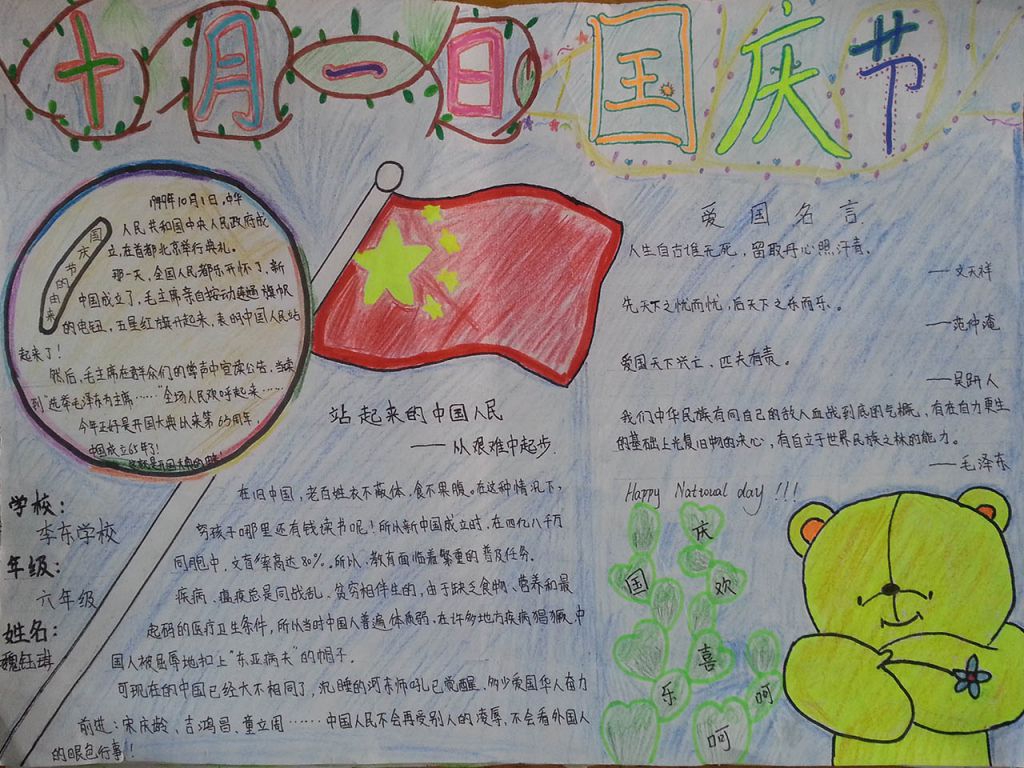 十月一日国庆节
国庆节的由来
1949年10月1日,中华
人民共和国中央人民政府成
立,在首都北京举行典礼。
那一天,全国人民都乐开怀了,新
中国成立了,毛主席亲自按动连通旗帜
的电钮,五星红旗升起来,表明中国人民站
起来了!
然后,毛主席在群众们的掌声中宣读公告,当读
到“选举毛泽东为主席……”全场人民欢呼起来……
今年正好是开国大典以来第65周年,
中国成立65年了!
站起来的中国人民
——从艰难中起步
在旧中国,老百姓衣不蔽体,食不果腹。在这种情况下,
穷孩子哪里还有钱读书呢!所以新中国成立时,在四亿八千万
同胞中,文盲率高达80%。所以,教育面临着繁重的普及任务。
疾病、瘟疫总是同战乱、贫穷相伴生的,由于缺乏食物、营养和最
起码的医疗卫生条件,所以当时中国人普遍体质弱。在许多地方疾病猖獗,中
国人被屈辱地扣上“东亚病夫”的帽子。
可现在的中国已经大不相同了,沉睡的河东师吼已觉醒,多少爱国华人奋力
前进:宋庆龄、吉鸿昌、童立周……中国人民不会再受别人的凌辱,不会看外国人
的眼色行事!
学校:
李东学校
年级:
六年级
姓名:
魏钰琪
爱国名言
人生自古谁无死,留取丹心照汗青。
——文天祥
先天下之忧而忧,后天下之乐而乐。
——范仲淹
爱国天下兴亡,匹夫有责。
——吴趼人
我们中华民族有向自己的敌人血战到底的气概,有在自力更生
的基础上光复旧物的决心,有自立于世界民族之林的能力。
——毛泽东
Happy National day !!!
国庆
欢
喜
乐
呵
呵